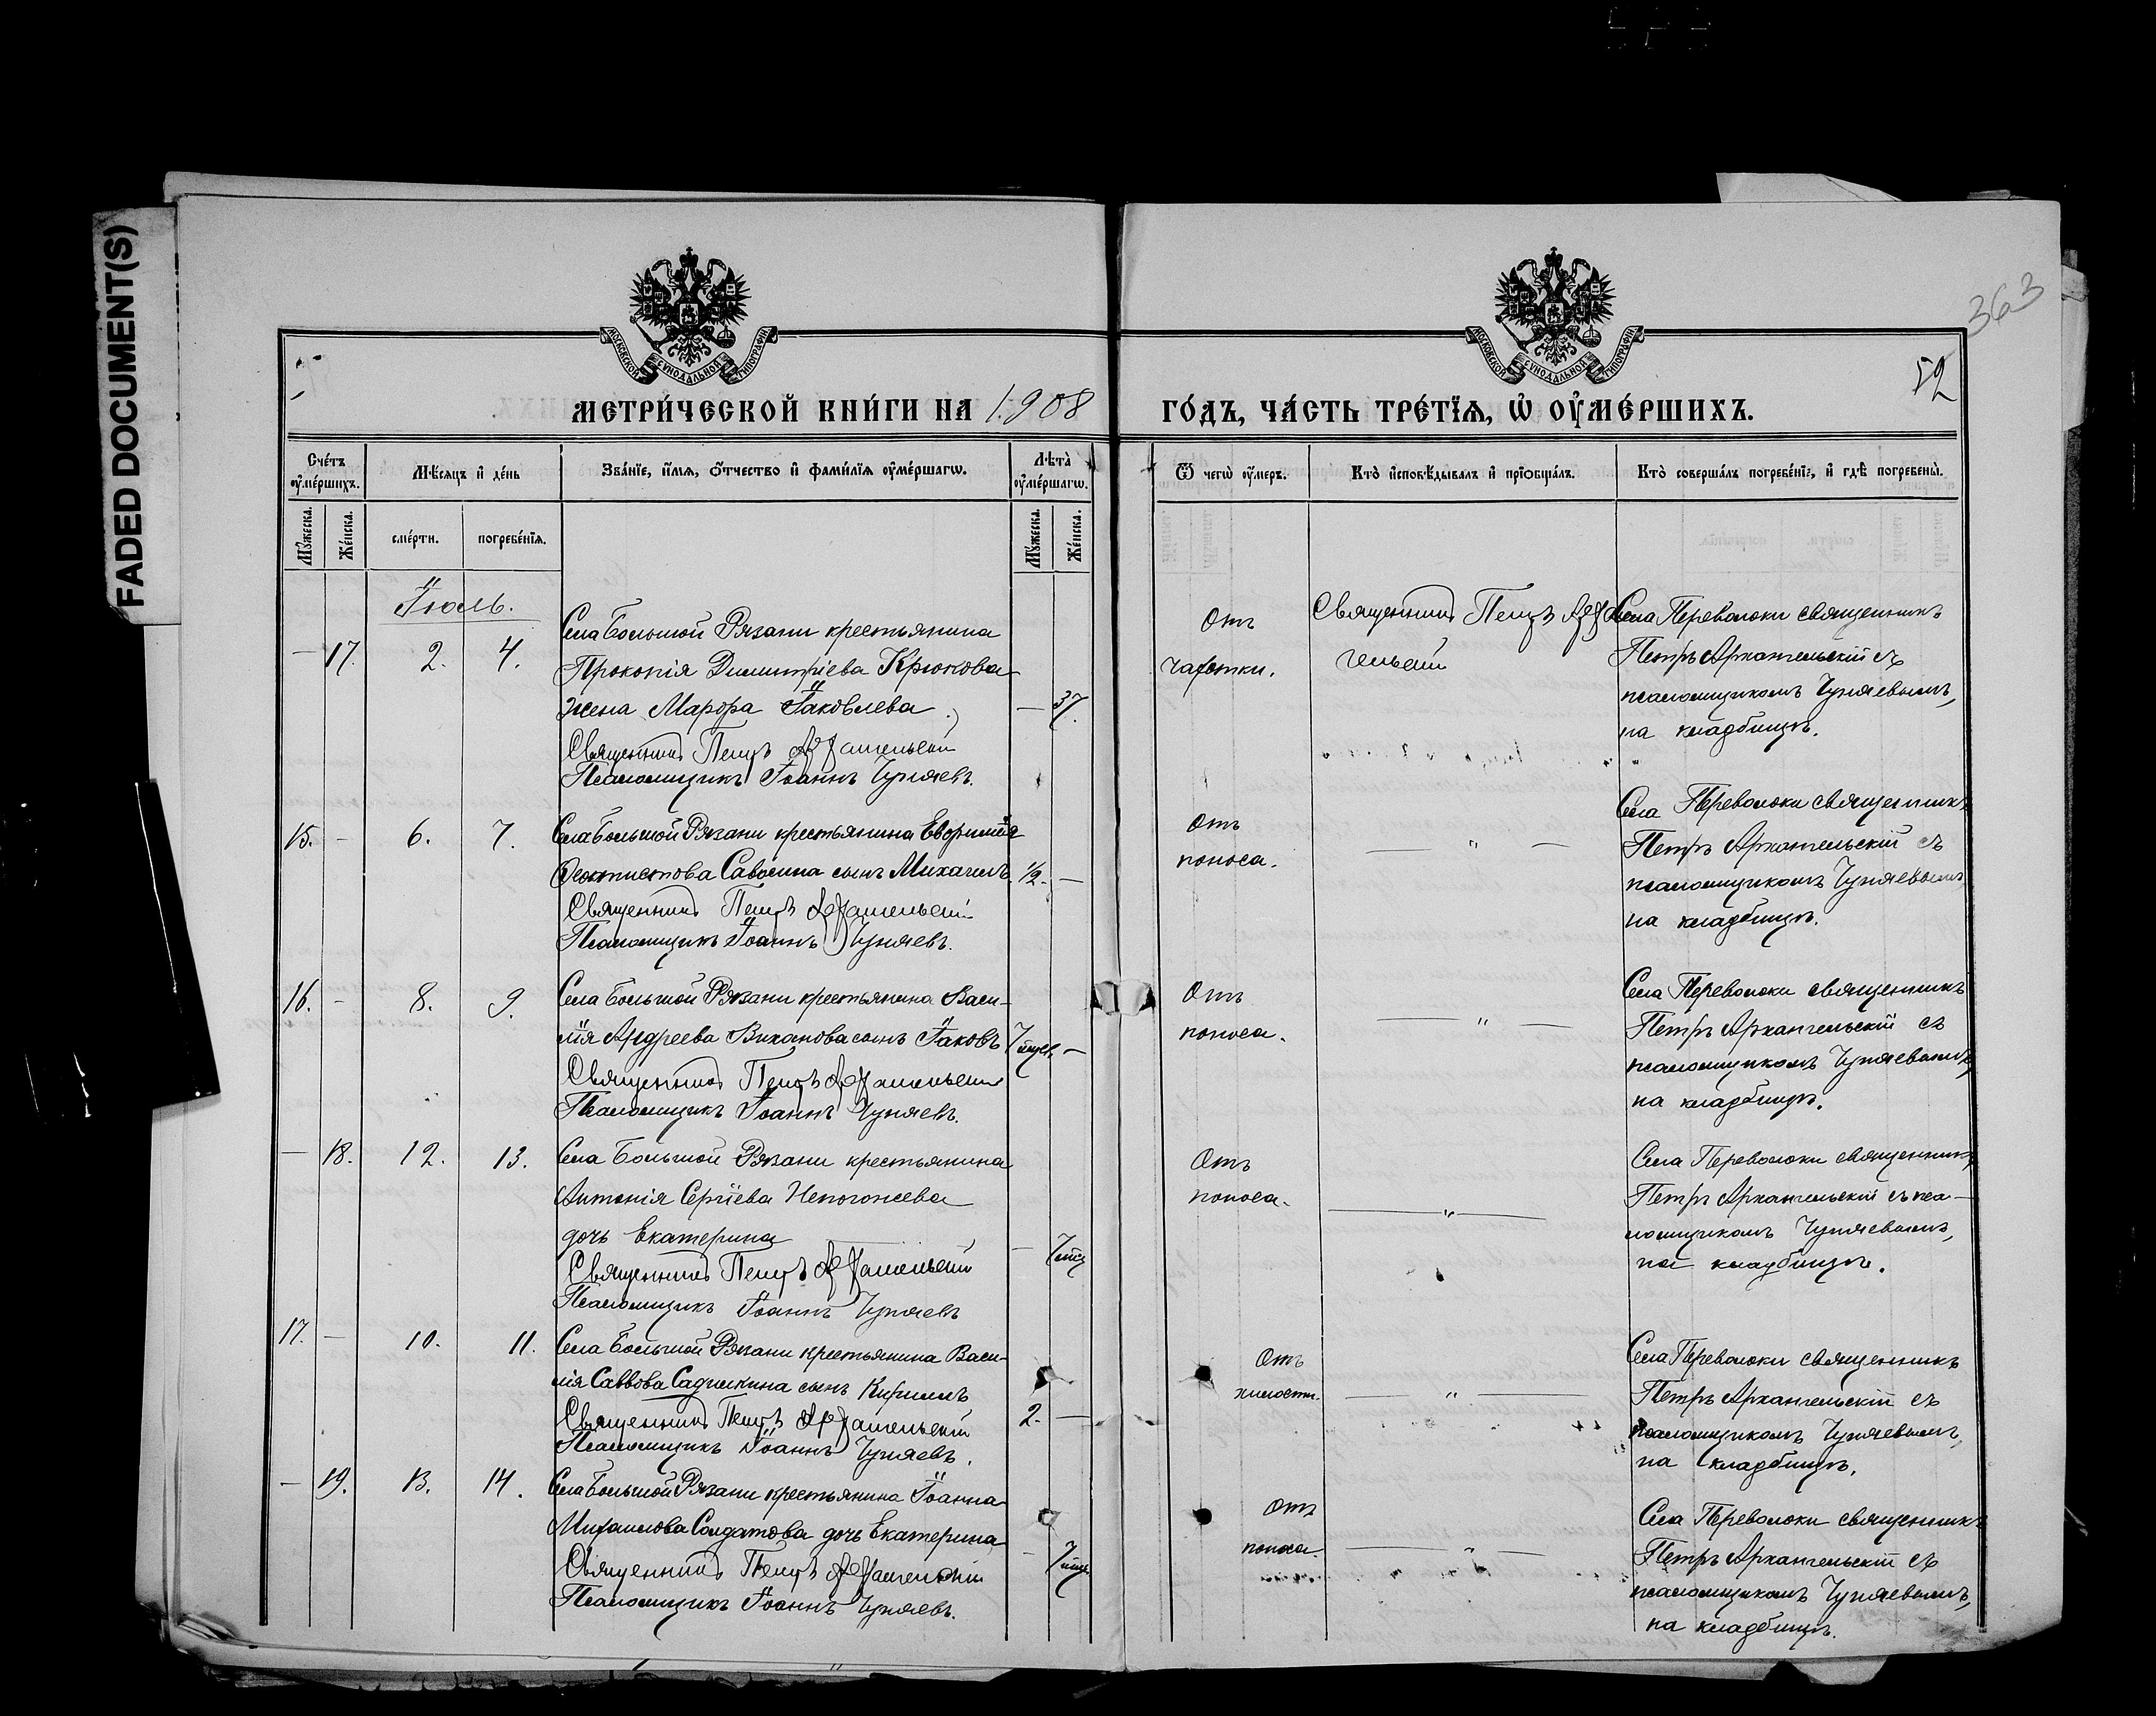 FADED DOCUMENT(S)
363
52
МОСКОВСКОЙ СѴНОДАЛЬНОЙ ТИПОГРАФІИ
МОСКОВСКОЙ СѴНОДАЛЬНОЙ ТИПОГРАФІИ
МЕТРИ́ЧЕСКОЙ КНИ́ГИ НА 1908 ГО́ДЪ, ЧА́СТЬ ТРЕ́ТЇѦ, Ѡ҆ ОУ҆МЕ́РШИХЪ.
Сче́тъ оу҆ме́ршихъ.
Мѣ́сяцъ и҆ де́нь
Зва́нїе, и҆́мѧ, ѻ҆́тчество и҆ фами́лїѧ оу҆ме́ршагѡ.
Лѣ́та̀ оу҆ме́ршагѡ.
Ѿ чегѡ̀ оу҆́меръ.
Кто̀ и҆сповѣ́дывалъ и҆ прїѻбща́лъ.
Кто̀ соверша́лъ погребе́нїе, и҆ гдѣ̀ погребены̀.
Мꙋ́жеска.
Же́нска.
сме́рти.
погребе́нїѧ.
Мꙋ́жеска.
Же́нска.
Іюль.
— 17. 2. 4.
Села Большой Рязани крестьянина
Прокопія Димитріева Крюкова
жена Марѳа Іаковлева
— 37.
Священникъ Петръ Архангельскій
Псаломщикъ Іоаннъ Чуняевъ.
Отъ
чахотки.
Священникъ Петръ Архан
гельскій
Села Переволоки священникъ
Петръ Архангельскій съ
псаломщикомъ Чуняевымъ,
на кладбищѣ.
15. — 6. 7.
Села Большой Рязани крестьянина Евѳимія
Ѳеоктистова Савосина сынъ Михаилъ
1/2. —
Священникъ Петръ Архангельскій
Псаломщикъ Іоаннъ Чуняевъ.
Отъ
поноса.
— " —
Села Переволоки священникъ
Петръ Архангельскій съ
псаломщикомъ Чуняевымъ,
на кладбищѣ.
16. — 8. 9.
Села Большой Рязани крестьянина Васи-
лія Андреева Виканова сынъ Іаковъ
7 —
Священникъ Петръ Архангельскій
Псаломщикъ Іоаннъ Чуняевъ.
Отъ
поноса.
— " —
Села Переволоки священникъ
Петръ Архангельскій съ
псаломщикомъ Чуняевымъ,
на кладбищѣ.
— 18. 12. 13.
Села Большой Рязани крестьянина
Антонія Сергіева Непогожева
дочь Екатерина
— 7
Священникъ Петръ Архангельскій
Псаломщикъ Іоаннъ Чуняевъ
Отъ
поноса.
— " —
Села Переволоки священникъ
Петръ Архангельскій съ пса-
ломщикомъ Чуняевымъ,
на кладбищѣ.
17. — 10. 11.
Села Большой Рязани крестьянина Васи-
лія Саввова Садчикина сынъ Кириллъ
2. —
Священникъ Петръ Архангельскій
Псаломщикъ Іоаннъ Чуняевъ.
Отъ
хилости.
— " —
Села Переволоки священникъ
Петръ Архангельскій съ
псаломщикомъ Чуняевымъ,
на кладбищѣ.
— 19. 13. 14.
Села Большой Рязани крестьянина Іоанна
Михаилова Солдатова дочь Екатерина
— 7
Священникъ Петръ Архангельскій
Псаломщикъ Іоаннъ Чуняевъ.
Отъ
поноса.
— " —
Села Переволоки священникъ
Петръ Архангельскій съ
псаломщикомъ Чуняевымъ,
на кладбищѣ.